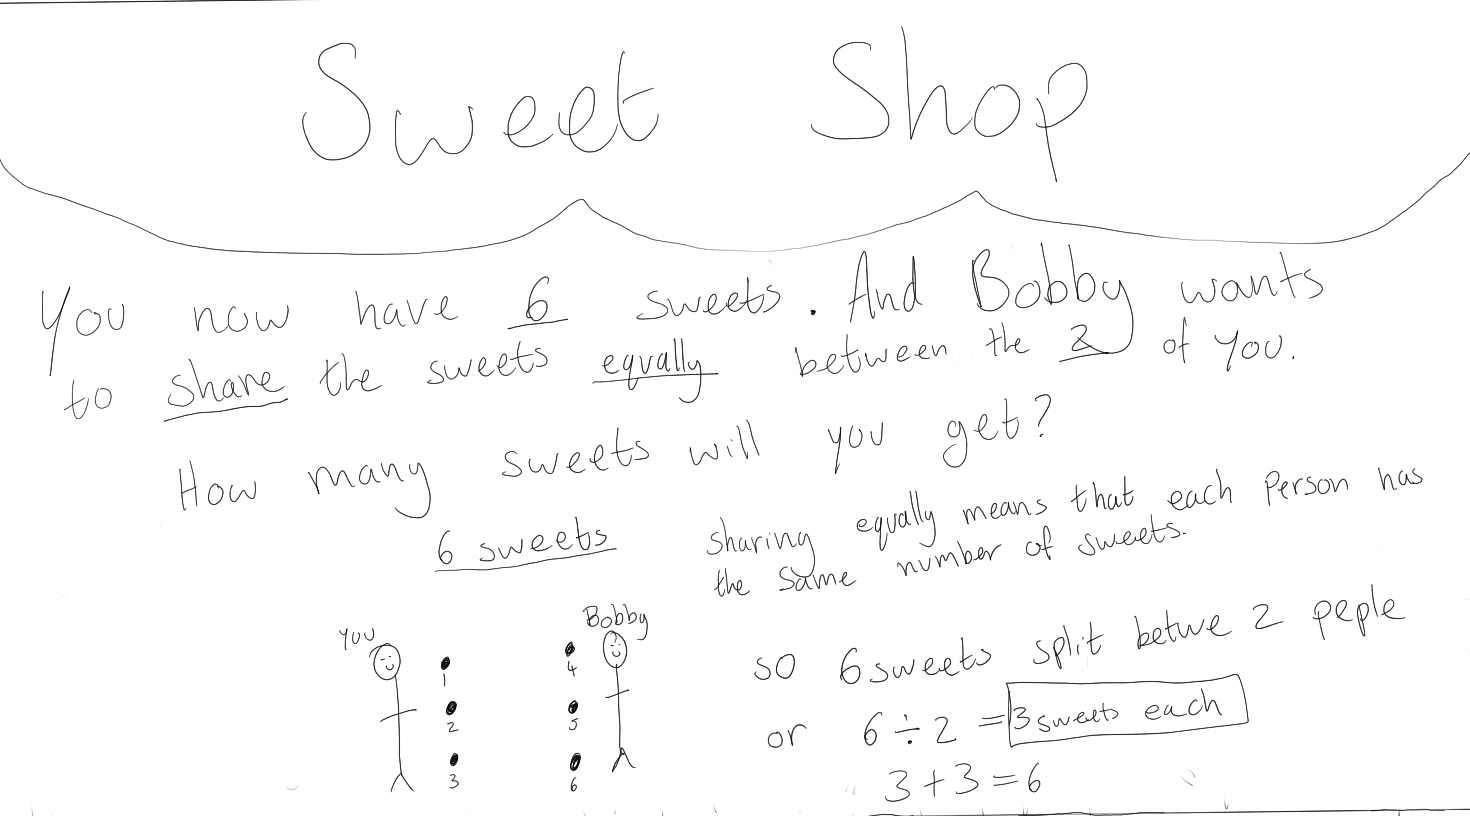 Sweet Shop
You now have 6 sweets. And Bobby wants
to share the sweets equally between the 2 of you.
How many sweets will you get?
6 sweets
sharing equally means that each Person has
the same number of sweets.
You
Bobby
1
2
3
4
5
6
so 6 sweets split betwe 2 peple
or 6 ÷ 2 = 3 sweets each
3 + 3 = 6